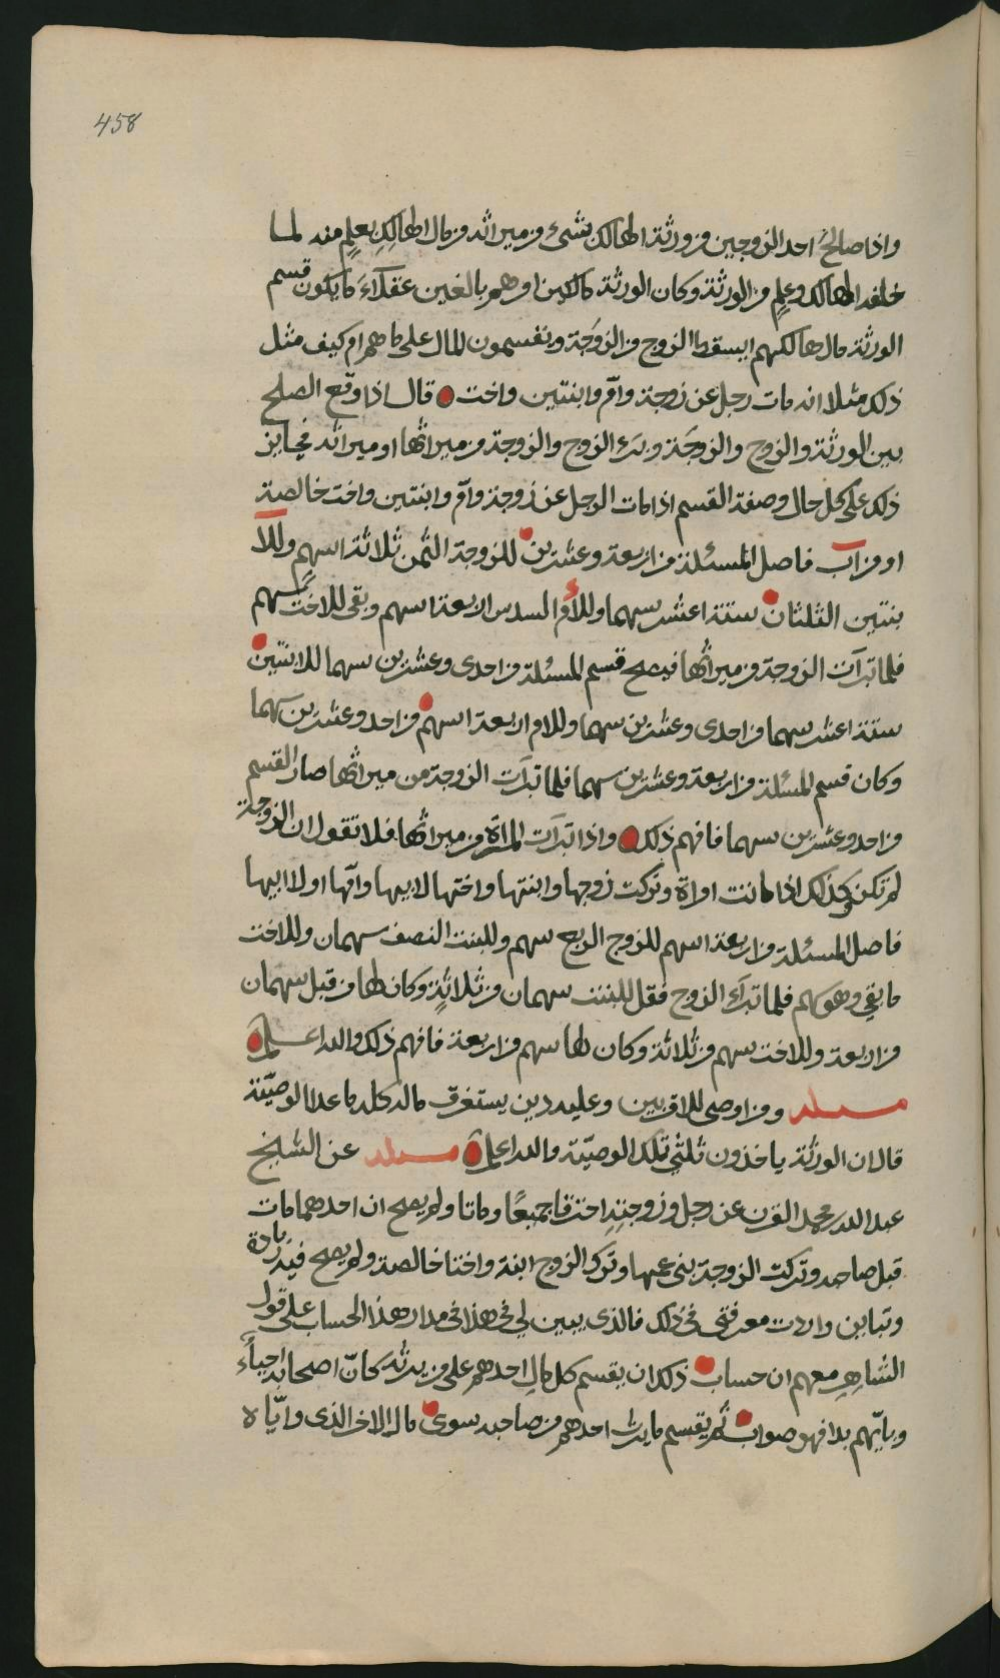 458
واذا صالح احد الزوجين من ورثة الهالك بشىء من ميراثه من مال الهالك بعلم منه لما
خلفه الهالك وعلم من الورثة وكان الورثة مالكين امرهم بالغين عقلاء ما يكون قسم
الورثة مال هالكهم ايسقط الزوج من الزوجة ونقسمون المال على ما هم ام كيف مثل
ذلك مثلا انه مات رجل عن زوجة وام وابنتين واخت قال اذا وقع الصلح
بين الورثة والزوج والزوجة وبرء الزوج والزوجة من ميراثها او ميراثه فجايز
ذلك على كل حال وصفة القسم اذا مات الرجل عن زوجة وام وابنتين واخت خالصة
او من اب فاصل المسئلة من اربعة وعشرين للزوجة الثمن ثلاثة اسهم وللا
بنتين الثلثان ستة اعشر سهما وللام السدس اربعة اسهم وبقى للاخت سهم
فلما تبرأت الزوجة من ميراثها فيصح قسم المسئلة من احدى وعشرين سهما للابنتين
ستة اعشر سهما من احدى وعشرين سهما وللام اربعة اسهم من احد وعشرين سهما
وكان قسم المسئلة من اربعة وعشرين سهما فلما تبرأت الزوجة من ميراثها صار القسم
من احد وعشرين سهما فافهم ذلك واذا تبرأت المراة من ميراثها فلا تقول ان الزوجة
لم تكن وكذلك اذا ماتت امراة وتركت زوجها وابنتها واختها لابيها وامها او لابيها
فاصل المسئلة من اربعة اسهم للزوج الربع سهم وللبنت النصف سهمان وللاخت
ما بقي وهو سهم فلما تبرأ الزوج فقل للبنت سهمان من ثلاثة وكان لها من قبل سهمان
من اربعة وللاخت سهم من ثلاثة وكان لها سهم من اربعة فافهم ذلك والله اعلم
مسئلة ومن اوصى للاقربين وعليه دين يستغرق ماله كله ما عدا الوصيّة
قال ان الورثة ياخذون ثلثي تلك الوصيّة والله اعلم مسئلة عن الشيخ
عبد الله بن محمد القرن عن رجل وزوجته احترقا جميعًا وماتا ولم يصح ان احدهما مات
قبل صاحبه وتركت الزوجة بني عمها وترك الزوج ابنة واختا خالصة ولم يصح فيه زيادة
وتباين واردت معرفتى فى ذلك فالذى يبين لي فى هذا فى مدار هذا الحساب على قول
الشاهر معهم ان حساب ذلك ان يقسم كل مال احدهم على من يرثه كانّ اصحابه احياءً
وبايّهم بدا فهو صواب ثم يقسم ما يرث احدهم من صاحبه سوى مال الاخر الذى وايّاه